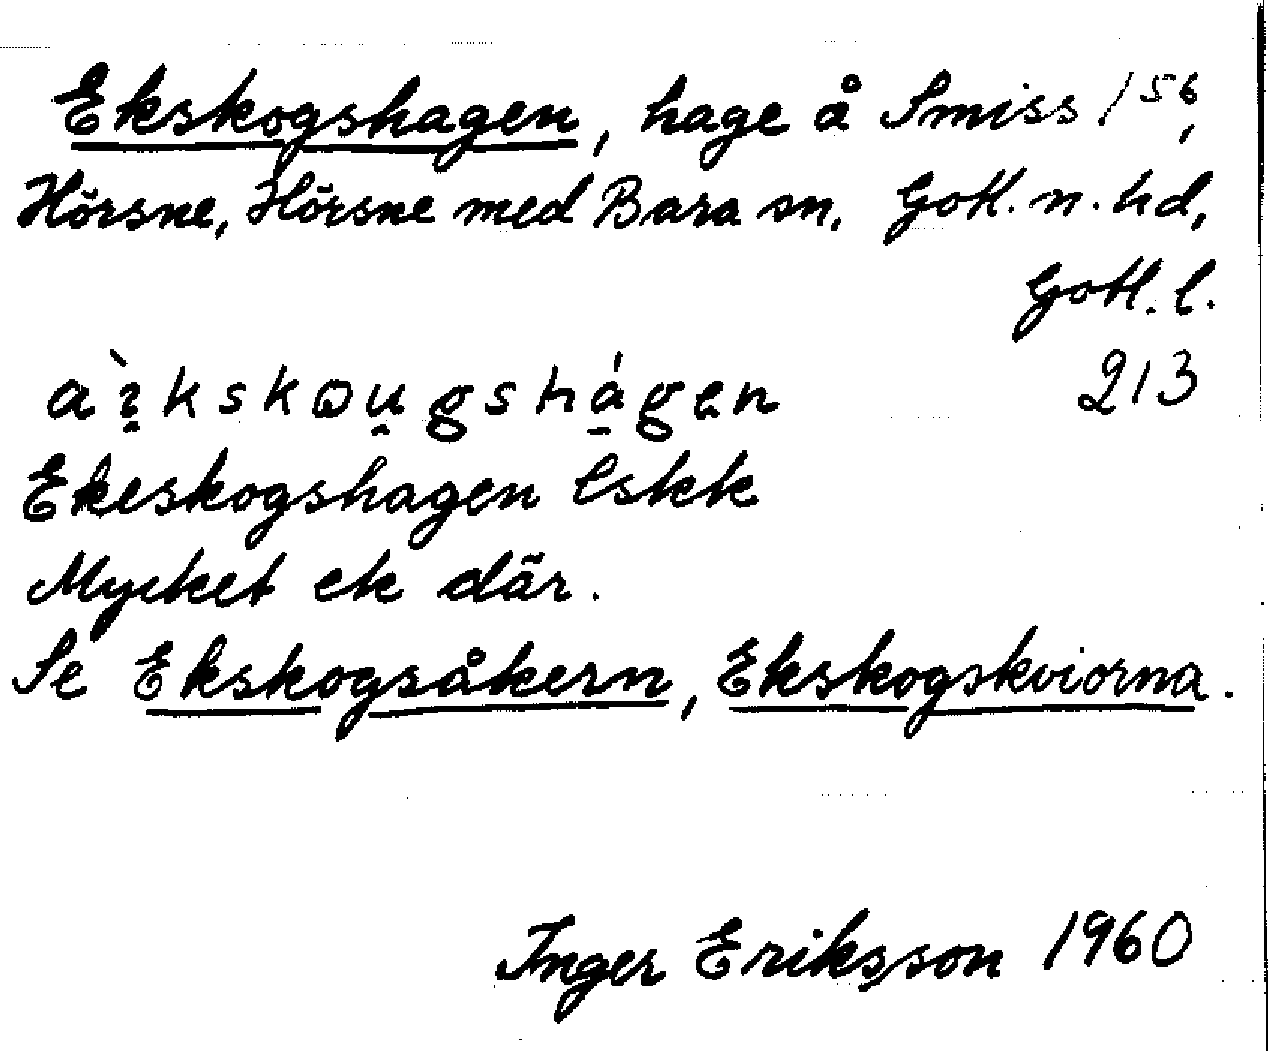 Ekskogshagen, hage å Smiss 1⁵⁶,
Hörsne, Hörsne med Bara sn. Gotl. n. hd,
Gotl. l.
213
Ekeskogshagen lskk
Mycket ek där.
Se Ekskogsåkern, Ekskogskviorna.
Inger Eriksson 1960